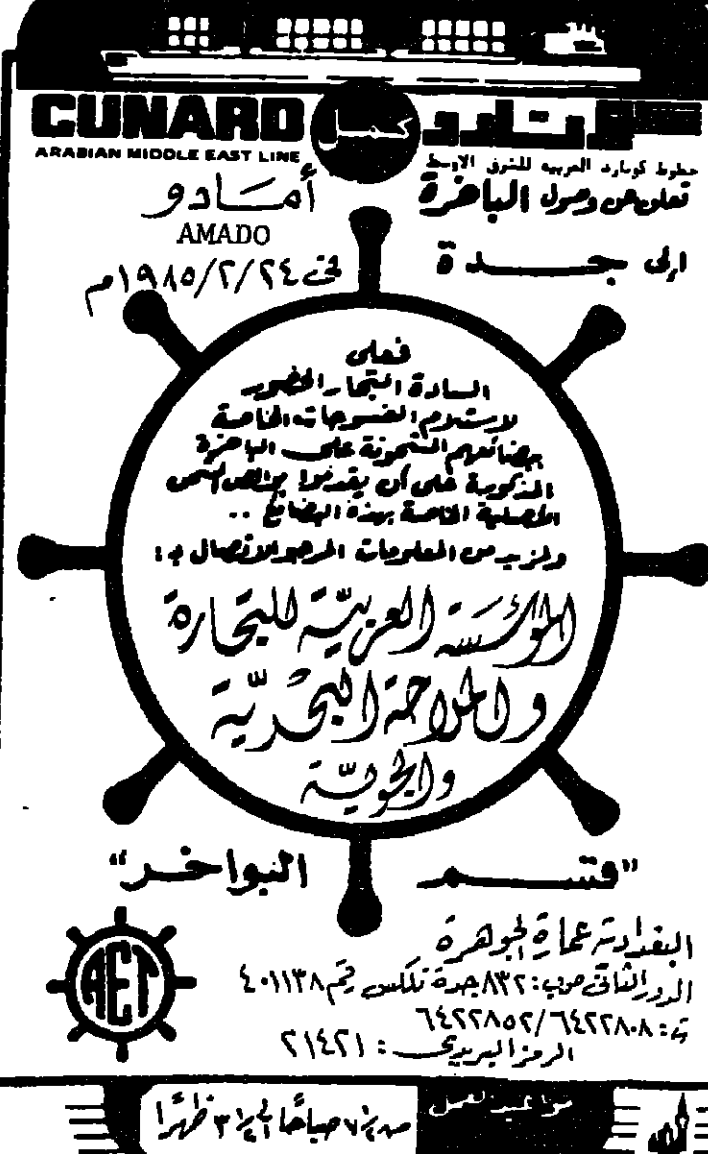 CUNARD كمل كونارد
ARABIAN MIDDLE EAST LINE
خطوط كونارد العربية للشرق الاوسط
تعلن عن وصول الباخرة
أمادو
AMADO
إلى جدة
في ١٩٨٥/٢/٢٤م
فعلى
السادة التجار الحضور
لاستلام الفسوحات الخاصة
ببضائعهم المشحونة على الباخرة
المذكورة على أن يقدموا بوالص الشحن
الأصلية الخاصة بهذه البضائع ..
ولمزيد من المعلومات الرجو الاتصال بـ:
المؤسسة العربية للتجارة
والملاحة البحرية
والجوية
"قسم البواخر"
AET
البغدادية عمارة الجوهرة
الدور الثاني صوب: ٨٣٢ جدة تلكس رقم ٤٠١١٣٨
ت: ٦٤٢٢٨٠٨/٦٤٢٢٨٥٢
الرمز البريدي: ٢١٤٢١
مواعيد العمل
من ٧½ صباحًا إلى ٣½ ظهرًا